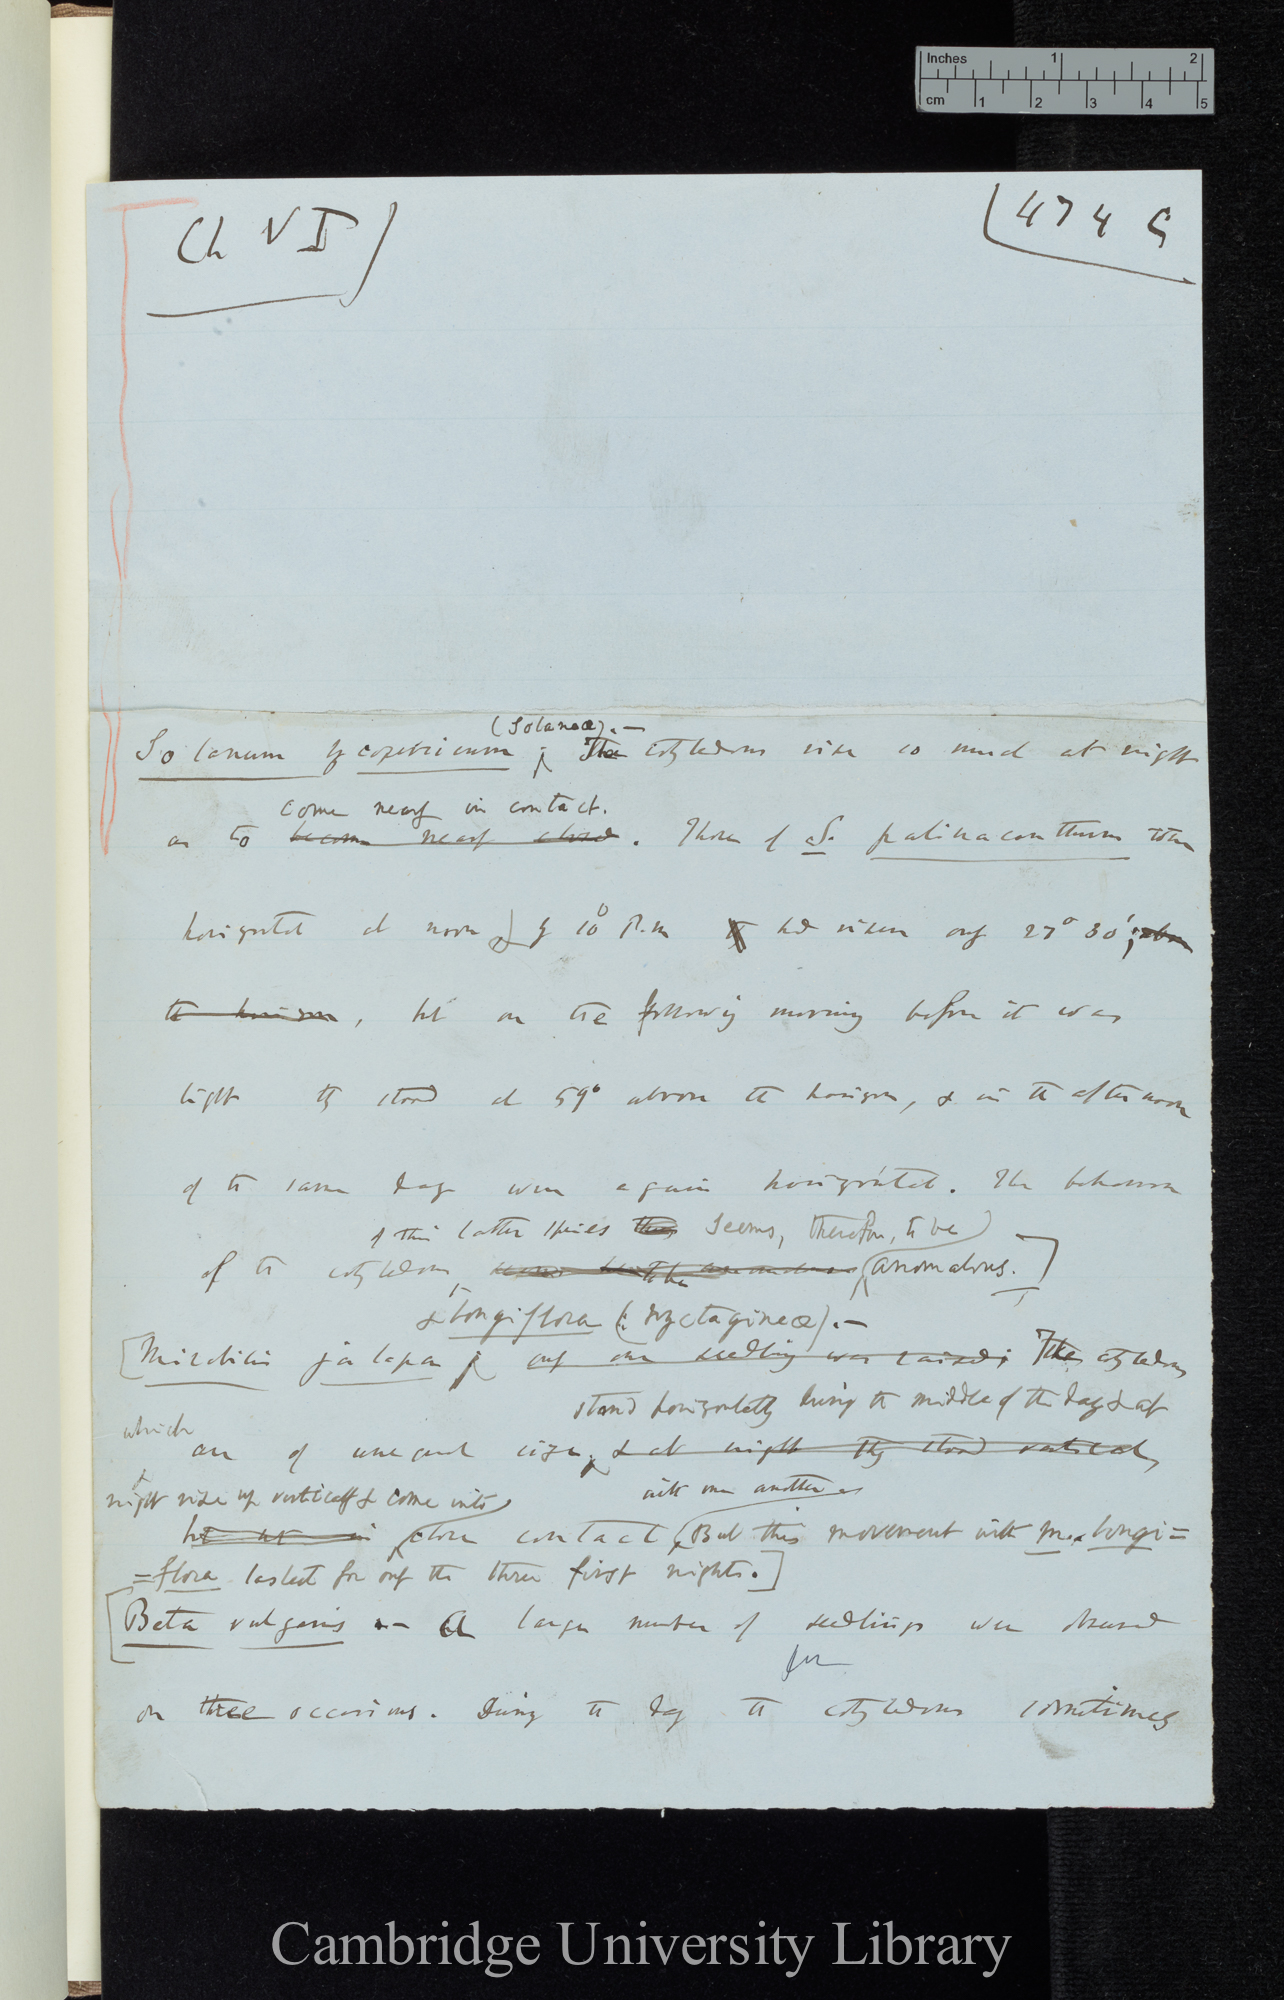 Inches 1 2
cm 1 2 3 4 5
Ch VI
474 G
(Solaneæ).—
Solanum lycopersicum ; The cotyledons rise so much at night
come nearly in contact.
as to become nearly closed . Those of S. palinacanthum were
horizontal at noon & by 10° P.m had risen only 27° 30'; above
the horizon , but on the following morning before it was
light they stood at 59° above the horizon, & in the afternoon
of the same day were again horizontal. The behaviour
of this latter species seems, therefore, to be
of the cotyledons, to be anomalous.
& longiflora (Nyctagineæ).—
Mirabilis jalapa only one seedling was raised; The cotyledons
stand horizontally during the middle of the day & at
which
are of unequal size, & at night they stood vertical,
night rise up vertically & come into
with one another
but not in close contact, But this movement with M. longi=
=flora lasted for only the three first nights.
Beta vulgaris — A large number of seedlings were observed
for
on three occasions. During the day the cotyledons sometimes
Cambridge University Library